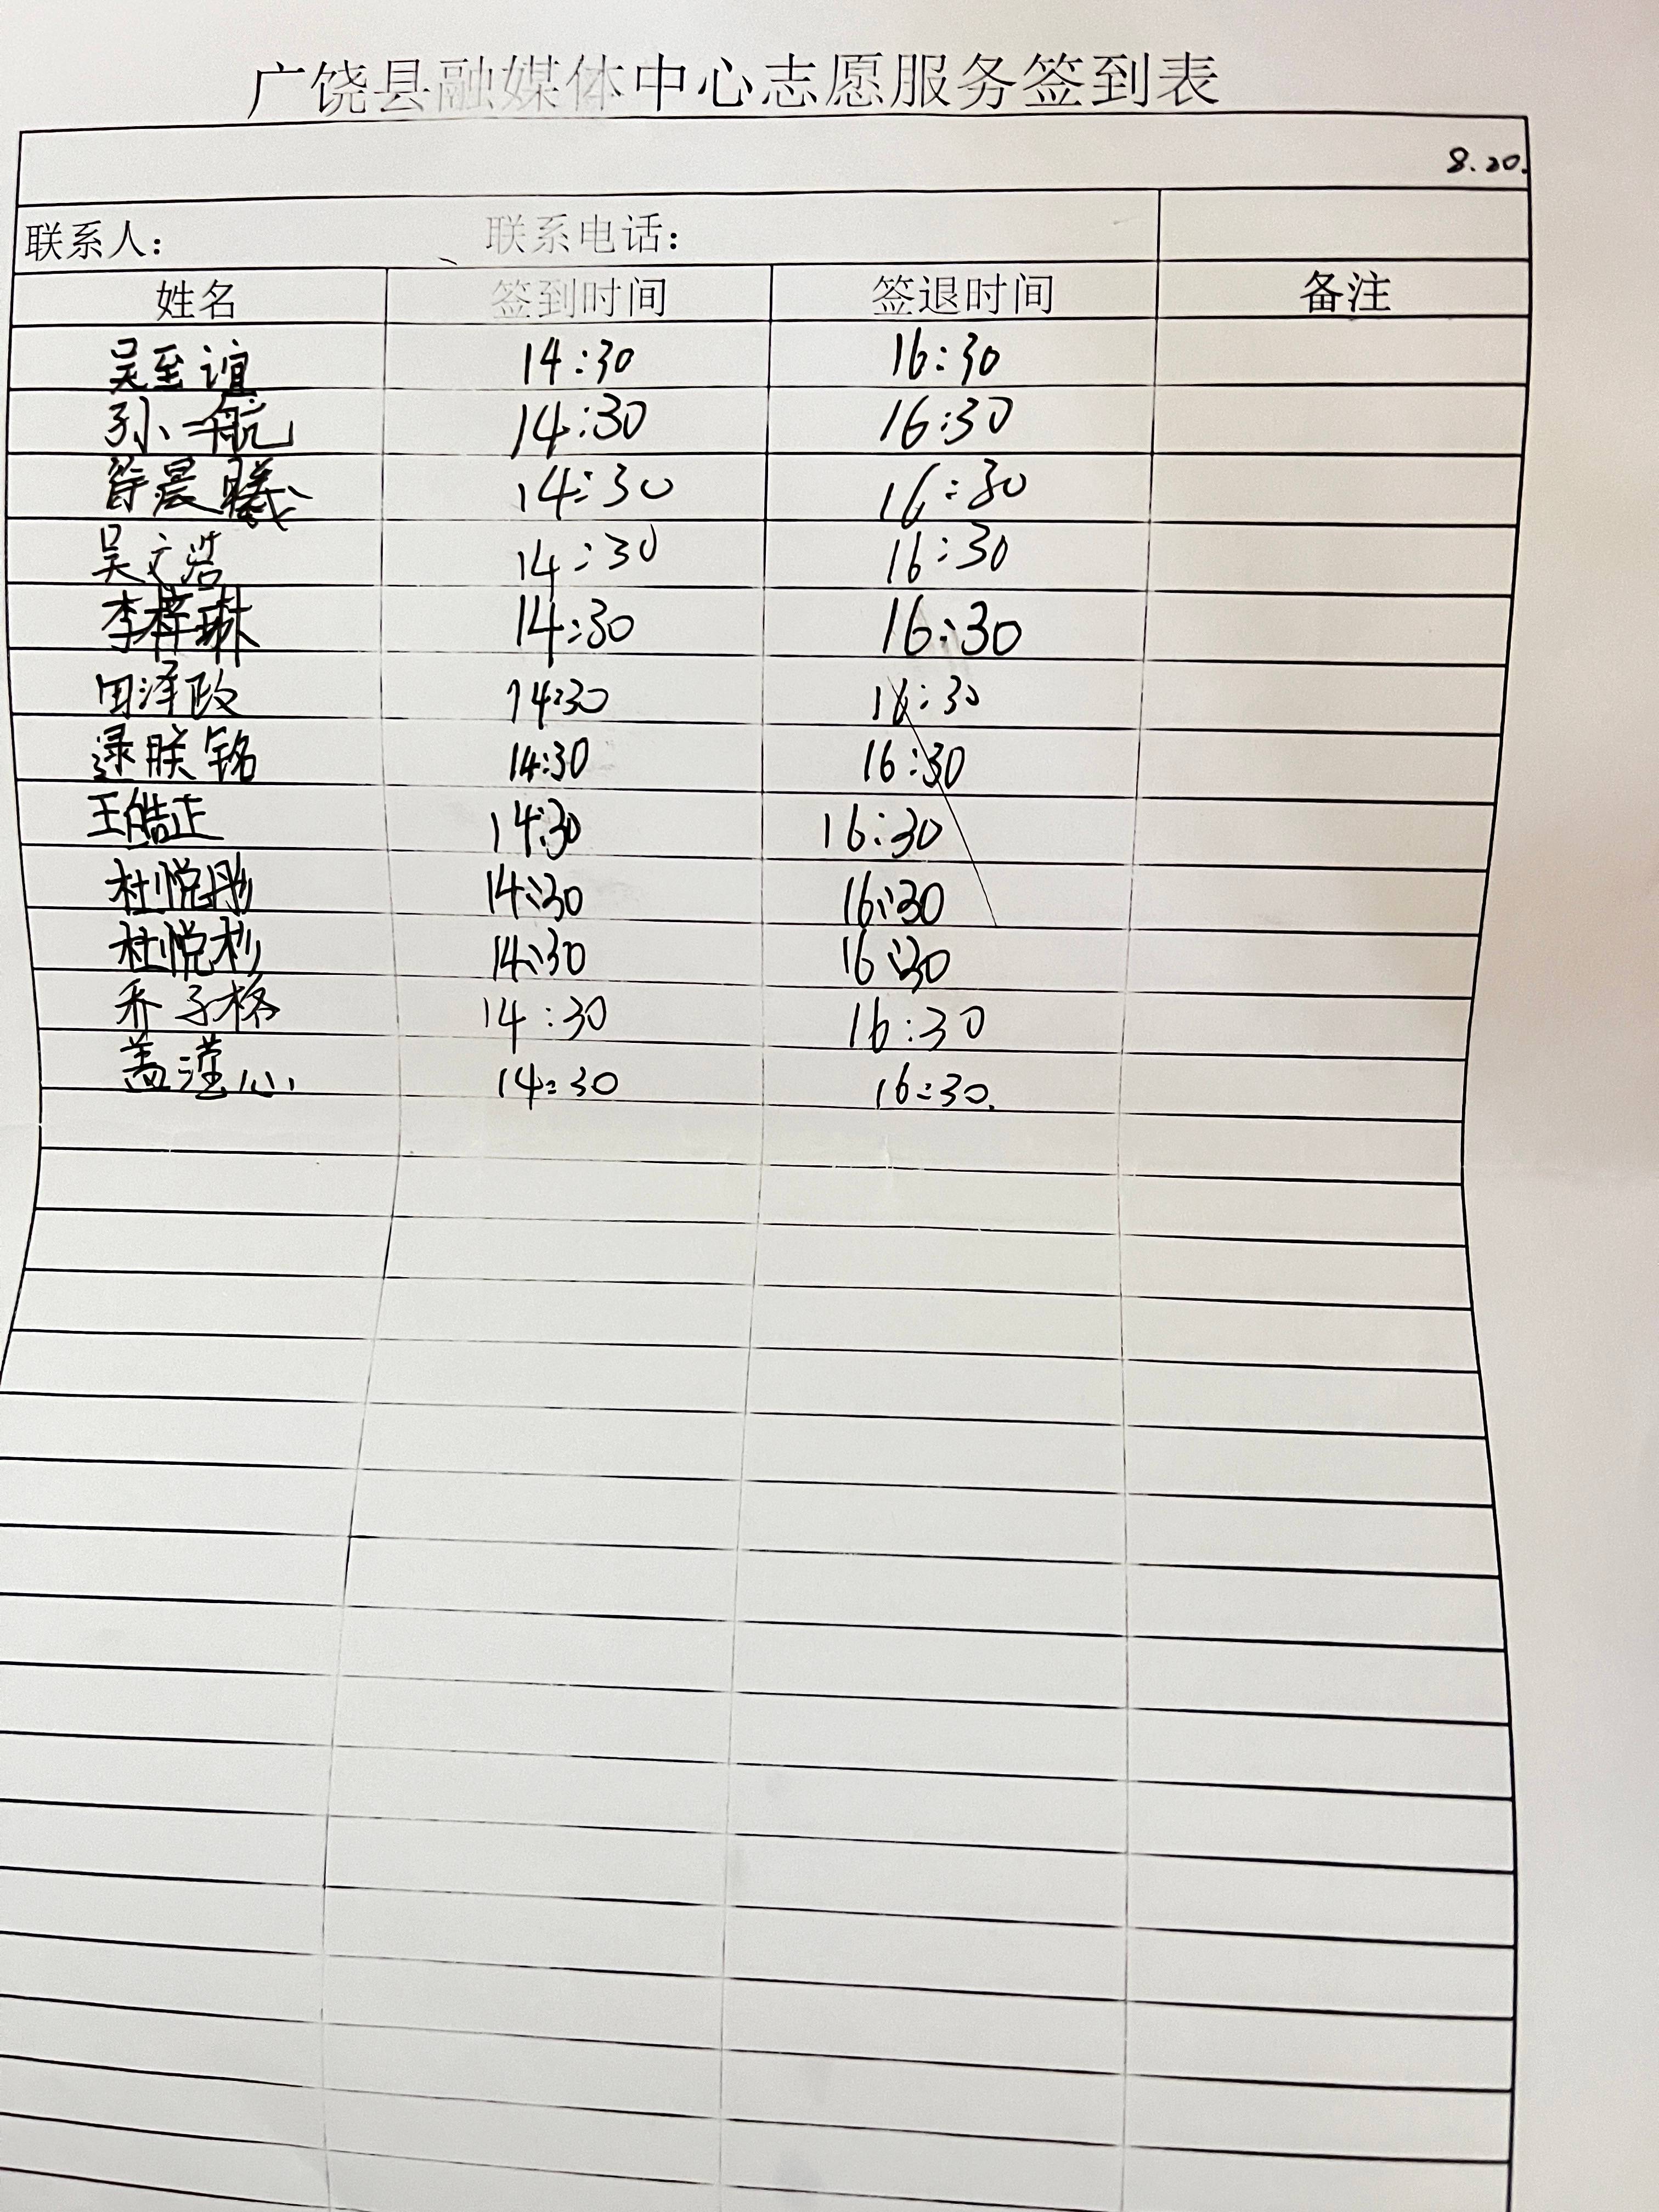 广饶县融媒体中心志愿服务签到表
8.20.
联系人： 联系电话：
姓名 签到时间 签退时间 备注
吴至谊 14:30 16:30
孙一航 14:30 16:30
晨曦 14:30 16:30
吴文浩 14:30 16:30
李梓琳 14:30 16:30
田泽政 14:30 16:30
逯朕铭 14:30 16:30
王皓正 14:30 16:30
杜悦彤 14:30 16:30
杜悦杉 14:30 16:30
乔子格 14:30 16:30
盖滢心 14:30 16:30.